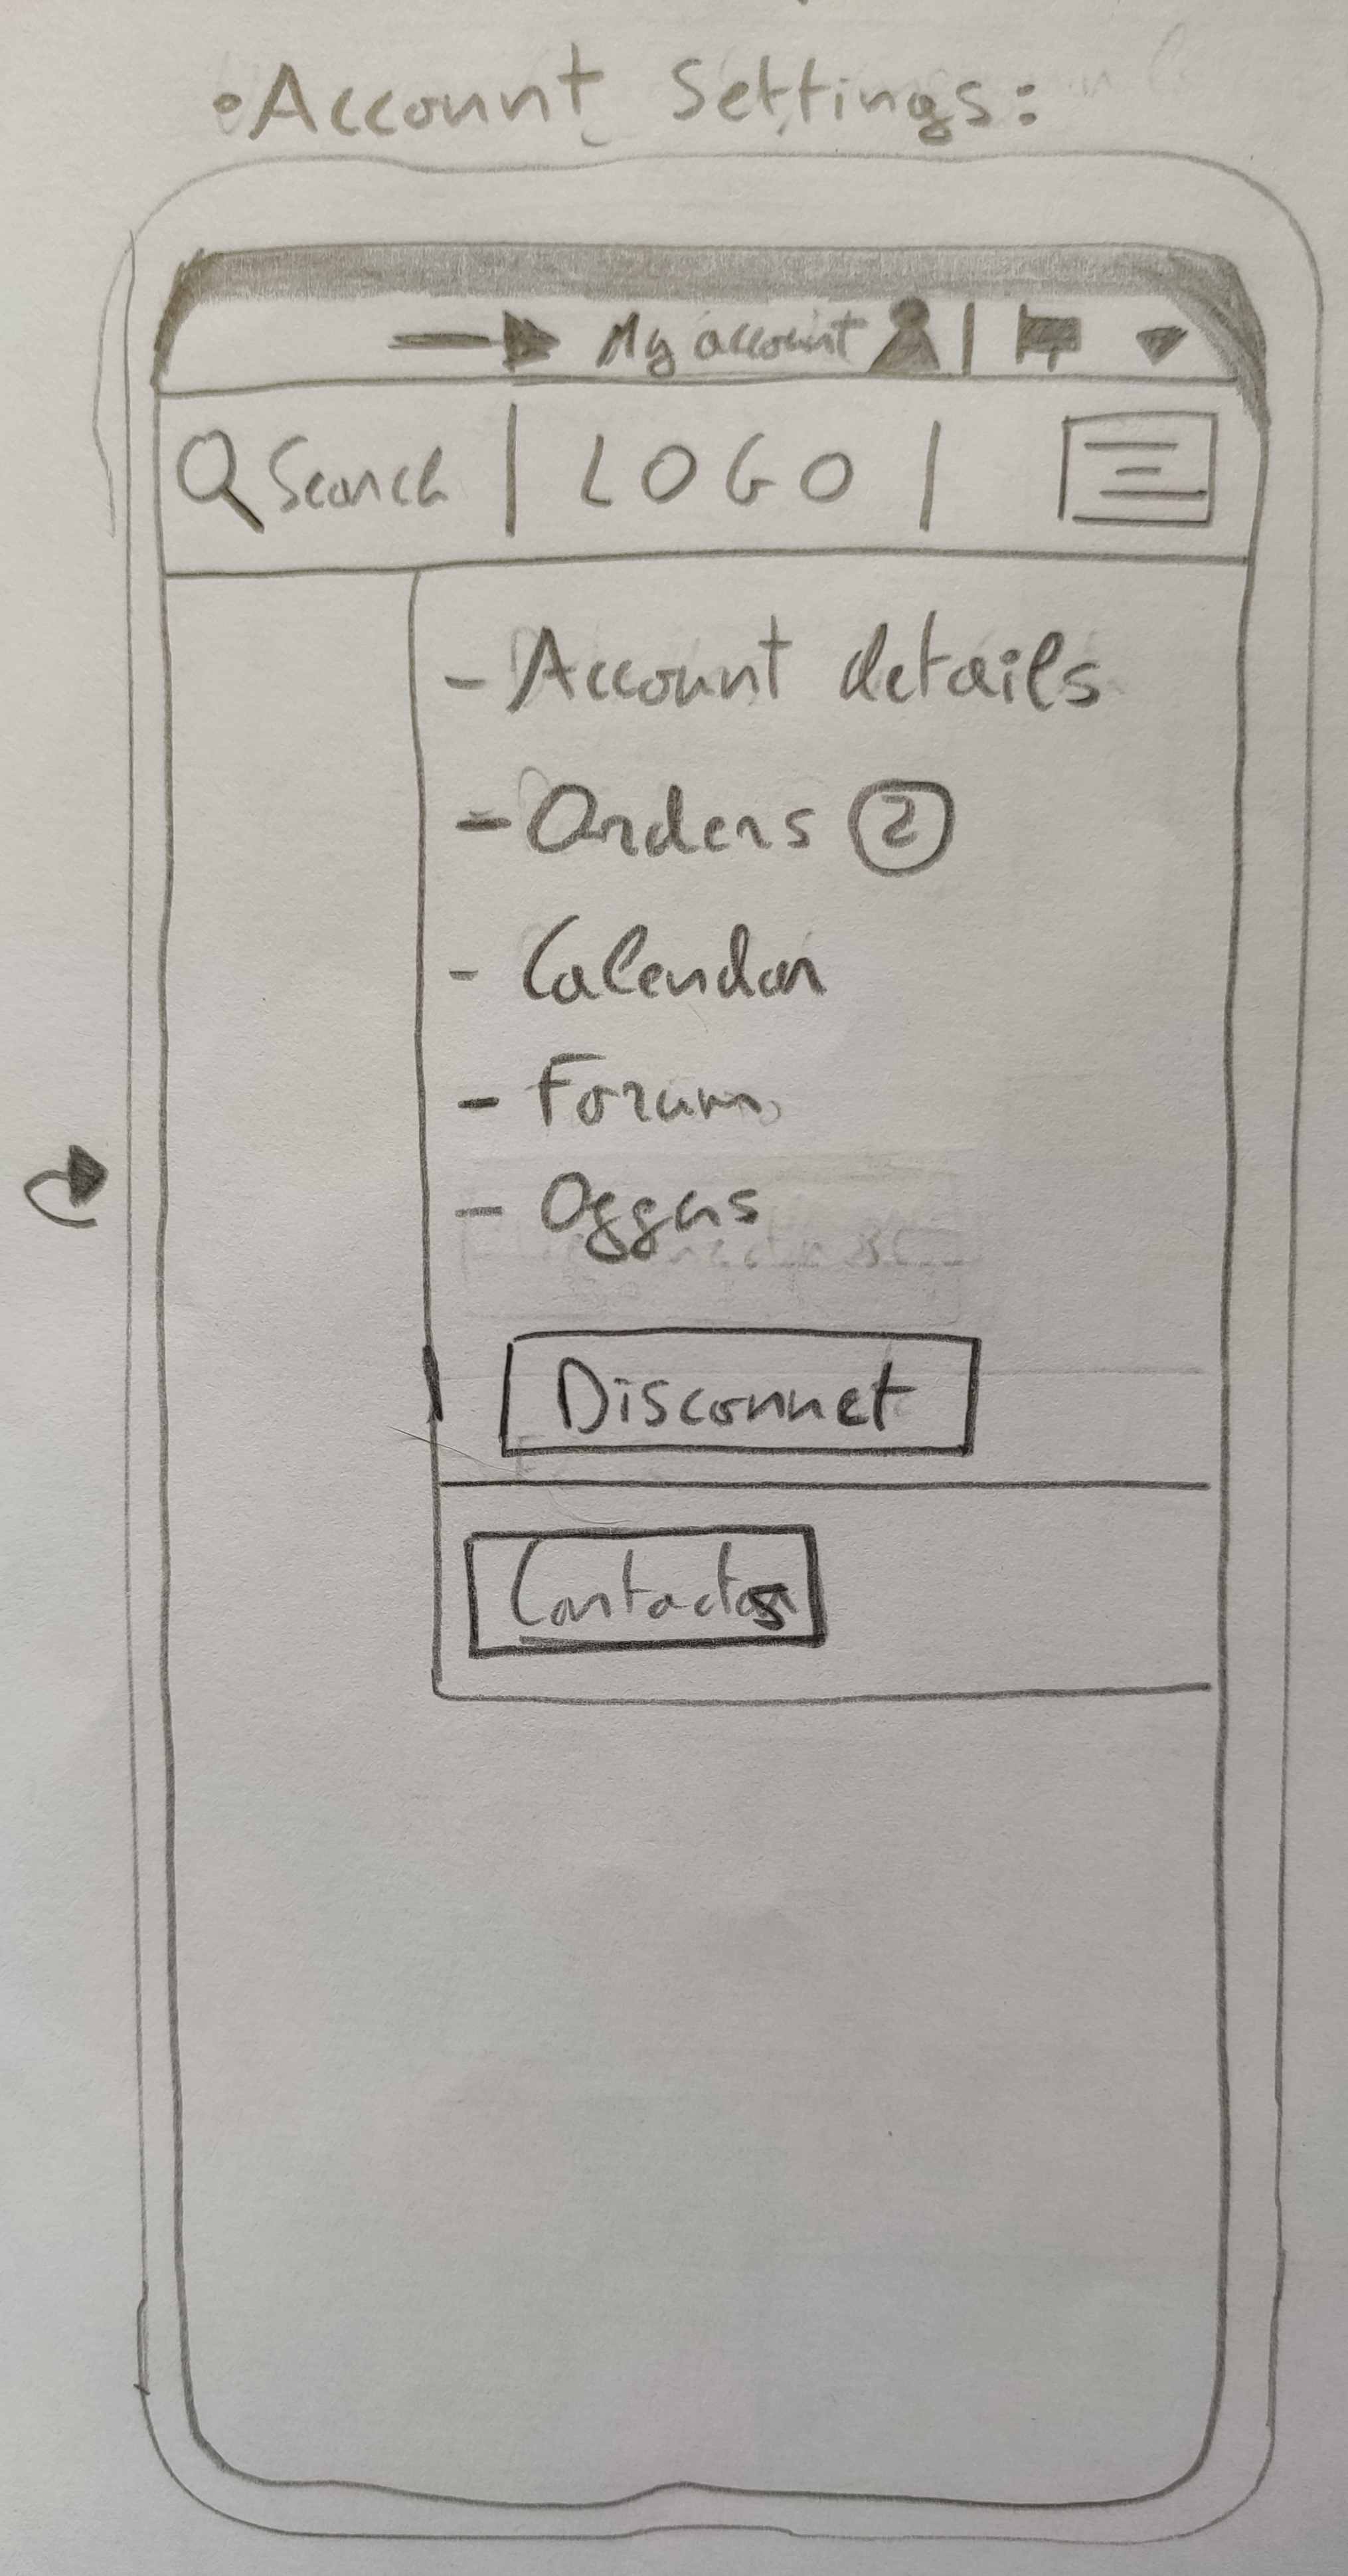 • Account Settings:
My account
Search | LOGO |
- Account details
- Orders 2
- Calendar
- Forum
Disconnet
Contactos